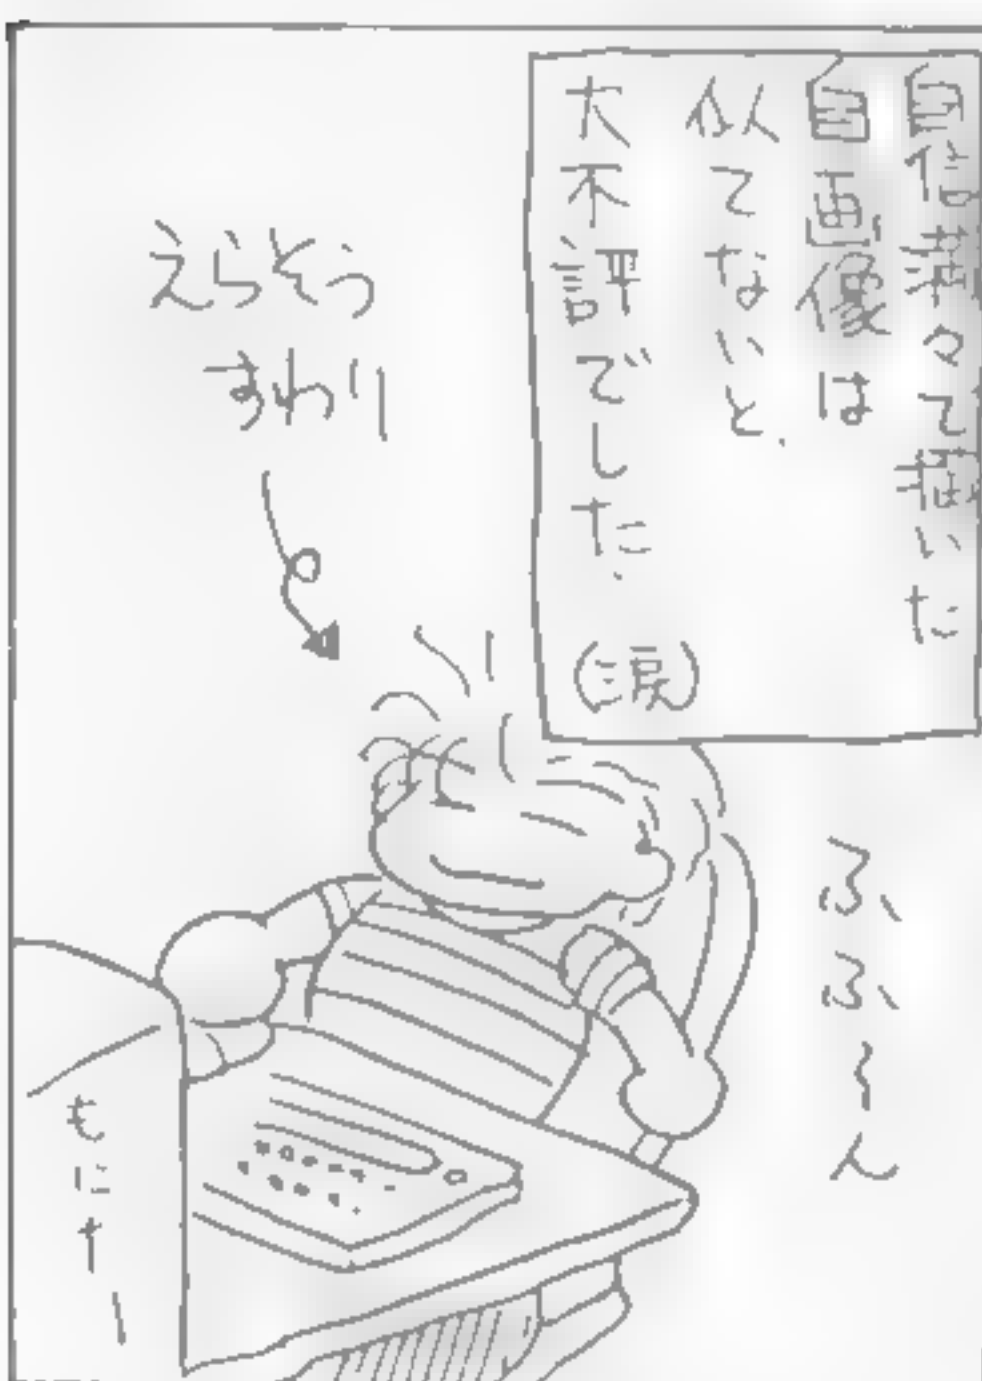 自信満々で描いた
自画像は
似てないと、
大不評でした.
(涙)
えらそう
すわり
ふふ〜ん
もにたー